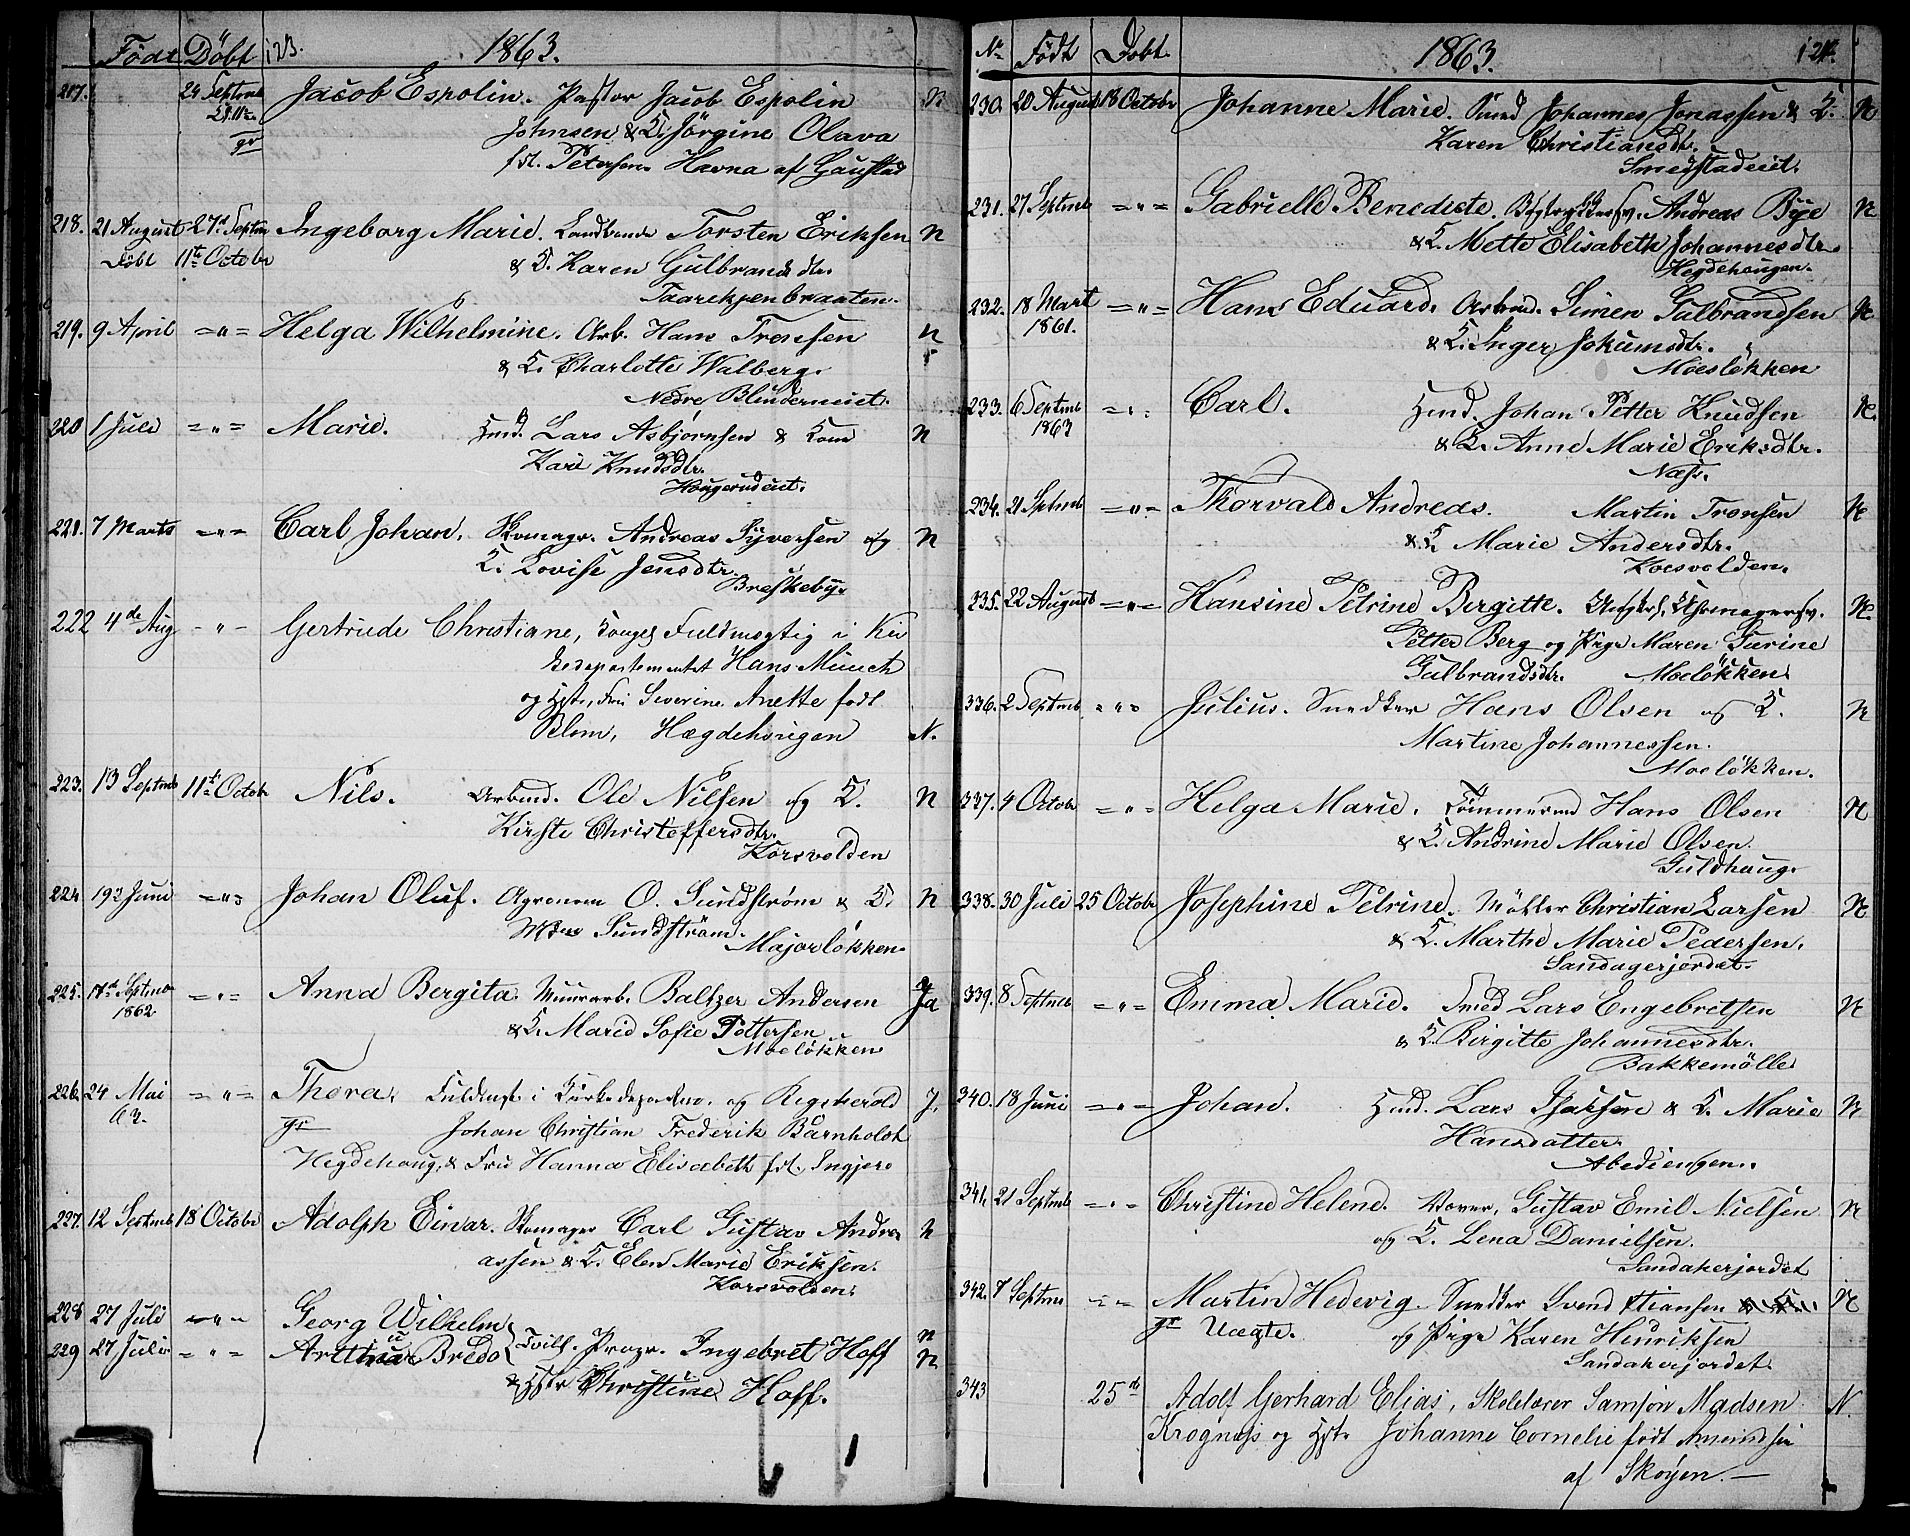 Født Döbt 123. 1863.
217. 24 Septmb Jacob Espolin. Pastor Jacob Espolin N
Johnsen & K. Jörgine Olava
gr fdt. Petersen. Havna af Gaustad
218. 21 August 27de Septm Ingeborg Marie. Torsten Eriksen N
Döbt 11te Octobr & K. Karen Gulbrandsdtr.
219. 9 April =„= Helga Wilhelmine. Arb. Hans Tronsen N
& K. Charlotte Walberg.
Nedre Blinderneiet.
220 1 Juli =„= Marie. Hmd. Lars Asbjørnsen & Kone N
Kari Knudsdtr.
Hougerudeiet.
221. 7 Marts =„= Carl Johan. Skomagr. Andreas Syversen og N
K. Lovise Jensdtr.
Breskeby.
222 4de Aug -„- Gertrude Christiane, Fuldmægtig i Kir
kedepartementet Hans Münch
og Hstr., Fru Severine Anette født
Blom, Hægdehougen N.
223. 13 Septmb 11te Octobr Nils. Arbmd. Ole Nilsen og K. N
Kirsti Christoffersdtr.
Korsvolden
224 19de Juni =„= Johan Oluf. Agronom O. Sundstrøm & K. N
Sundström.
Majorløkken.
225. 17de Septmb =„= Anna Bergita. Muurarb. Baltzer Andersen Ja
1862 & K. Marie Sofie Pettersen
Moeløkken
226. 24 Mai =„= Thora. Fuldmgt i Kirkedepartem. og Rigsherold J.
63. gr Johan Christian Frederik Barnholdt
Hegdehoug, & Fru Hanna Elisabeth fdt. Ingjer.
227. 12 Septmb 18 Octobr Adolph Einar. Skomager Carl Gustav Andre N
assen & K. Elen Marie Eriksen.
Korsvolden.
228 27 Juli =„= Georg Wilhelm N
229 27 Juli =„= Bredo Tvill. Ingebret Hoff N
& Hstr Christine Hoff.
No Födt Dobt 1863. 124.
230. 20 August 18 Octobr Johanne Marie. Smed Johannes Jonassen & K. N
Karen Christiansdtr.
Smedstadeiet.
231. 27 Septmb =„= Gabrielle Benedicte. Andreas Bye N
& K. Mette Elisabeth Johannesdtr.
Hegdehaugen.
232. 18 Mart =„= Hans Eduard. Arbmd. Simen Gulbrandsen N
1861. & K. Inger Jokumsdtr.
Moesløkken
233. 6 Septmb =„= Carl. Hmd. Johan Petter Knudsen N.
1863 & K. Anne Marie Eriksdtr.
Næss.
234. 21 Sptmb =„= Thorvald Andreas. Martin Tronsen N
& K. Marie Andersdtr.
Korsvolden.
235. 22 August =„= Hansine Petrine Bergitte. N.
Petter Berg og Pige Maren Gurine
Gulbrandsdtr. Moeløkken
336. 2 Septmb =„= Julius. Snedker Hans Olsen og K. N
Martine Johannessen.
Moeløkken.
337. 4 Octobr =„= Helga Marie. Tømmermd Hans Olsen N
& K. Andrine Marie Olsen.
Guldhaug.
338. 30 Juli 25 Octobr Josephine Petrine. Møller Christian Larsen N
& K. Marthe Marie Pedersen.
Sandagerjordet.
339. 8 Septmb =„= Emma Marie. Smed Lars Engebretsen N
& K. Birgitte Johannesdtr.
Bakkemølle
340. 18 Juni =„= Johan. Hmd. Lars Isaksen & K. Marie N
Hansdatter
Abediengen.
341. 21 Septmb =„= Christine Helene. Væver, Gustav Emil Nielsen N
og K. Lena Danielsen.
Sandakerjordet
342. 7 Septmb =„= Martin Hedevig. Snedker Svend Stiansen N
gr Uægte. og Pige Karen Henriksen
Sandakerjordet.
343 25de Adolf Gerhard Elias, Skolelærer Samson Madsen N.
Krognæss og Hstr Johanne Cornelie født
af Skøyen. —